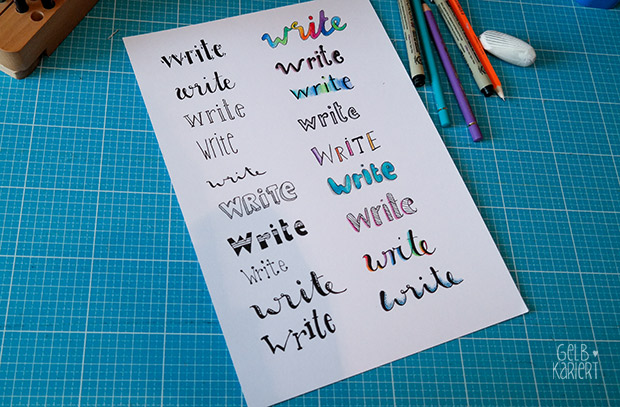 write
write
write
write
write
WRiTE
write
write
write
write
write
write
write
write
WRITE
write
write
write
write
GELB
KARIERT